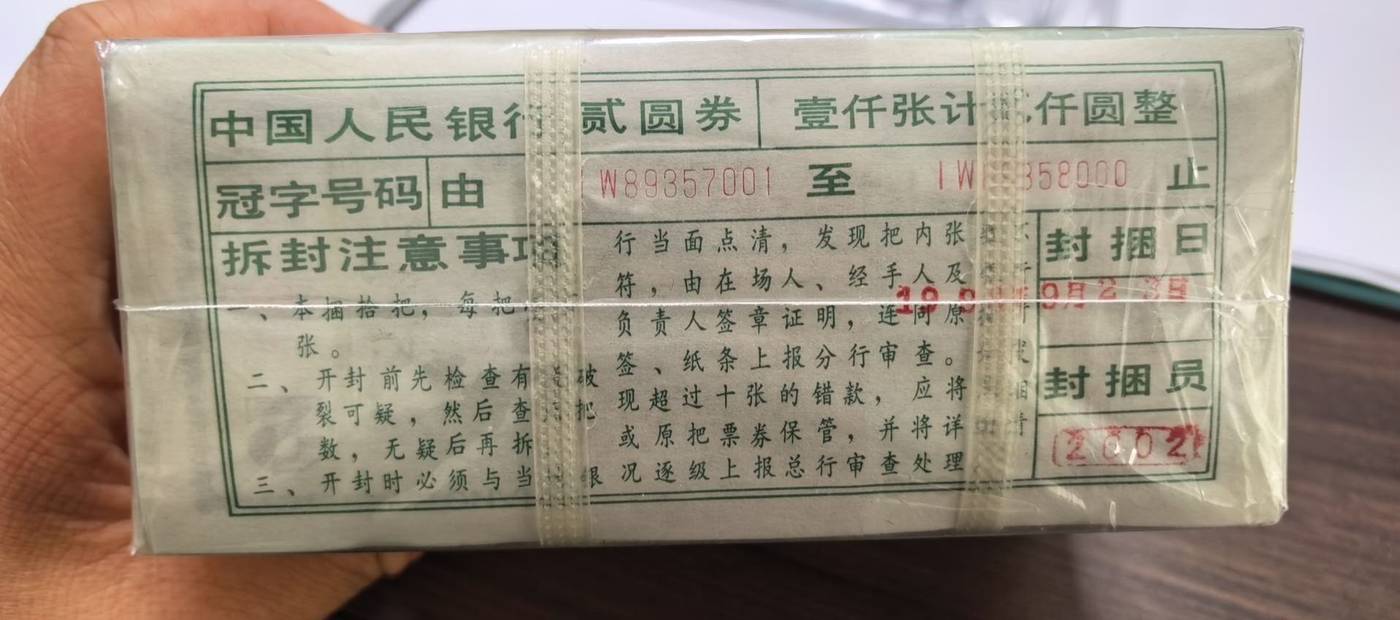 中国人民银行 贰圆券 壹仟张计 仟圆整
冠字号码 由 W89357001 至 IW 358000 止
拆封注意事项
一、本捆拾把，每把
张。
二、开封前先检查有 破
裂可疑，然后查 把
数，无疑后再拆
三、开封时必须与当 银
行当面点清，发现把内张
符，由在场人、经手人及
负责人签章证明，连同原
签、纸条上报分行审查。
现超过十张的错款，应将
或原把票券保管，并将详
况逐级上报总行审查处理
封捆日
19 9月23日
封捆员
2002